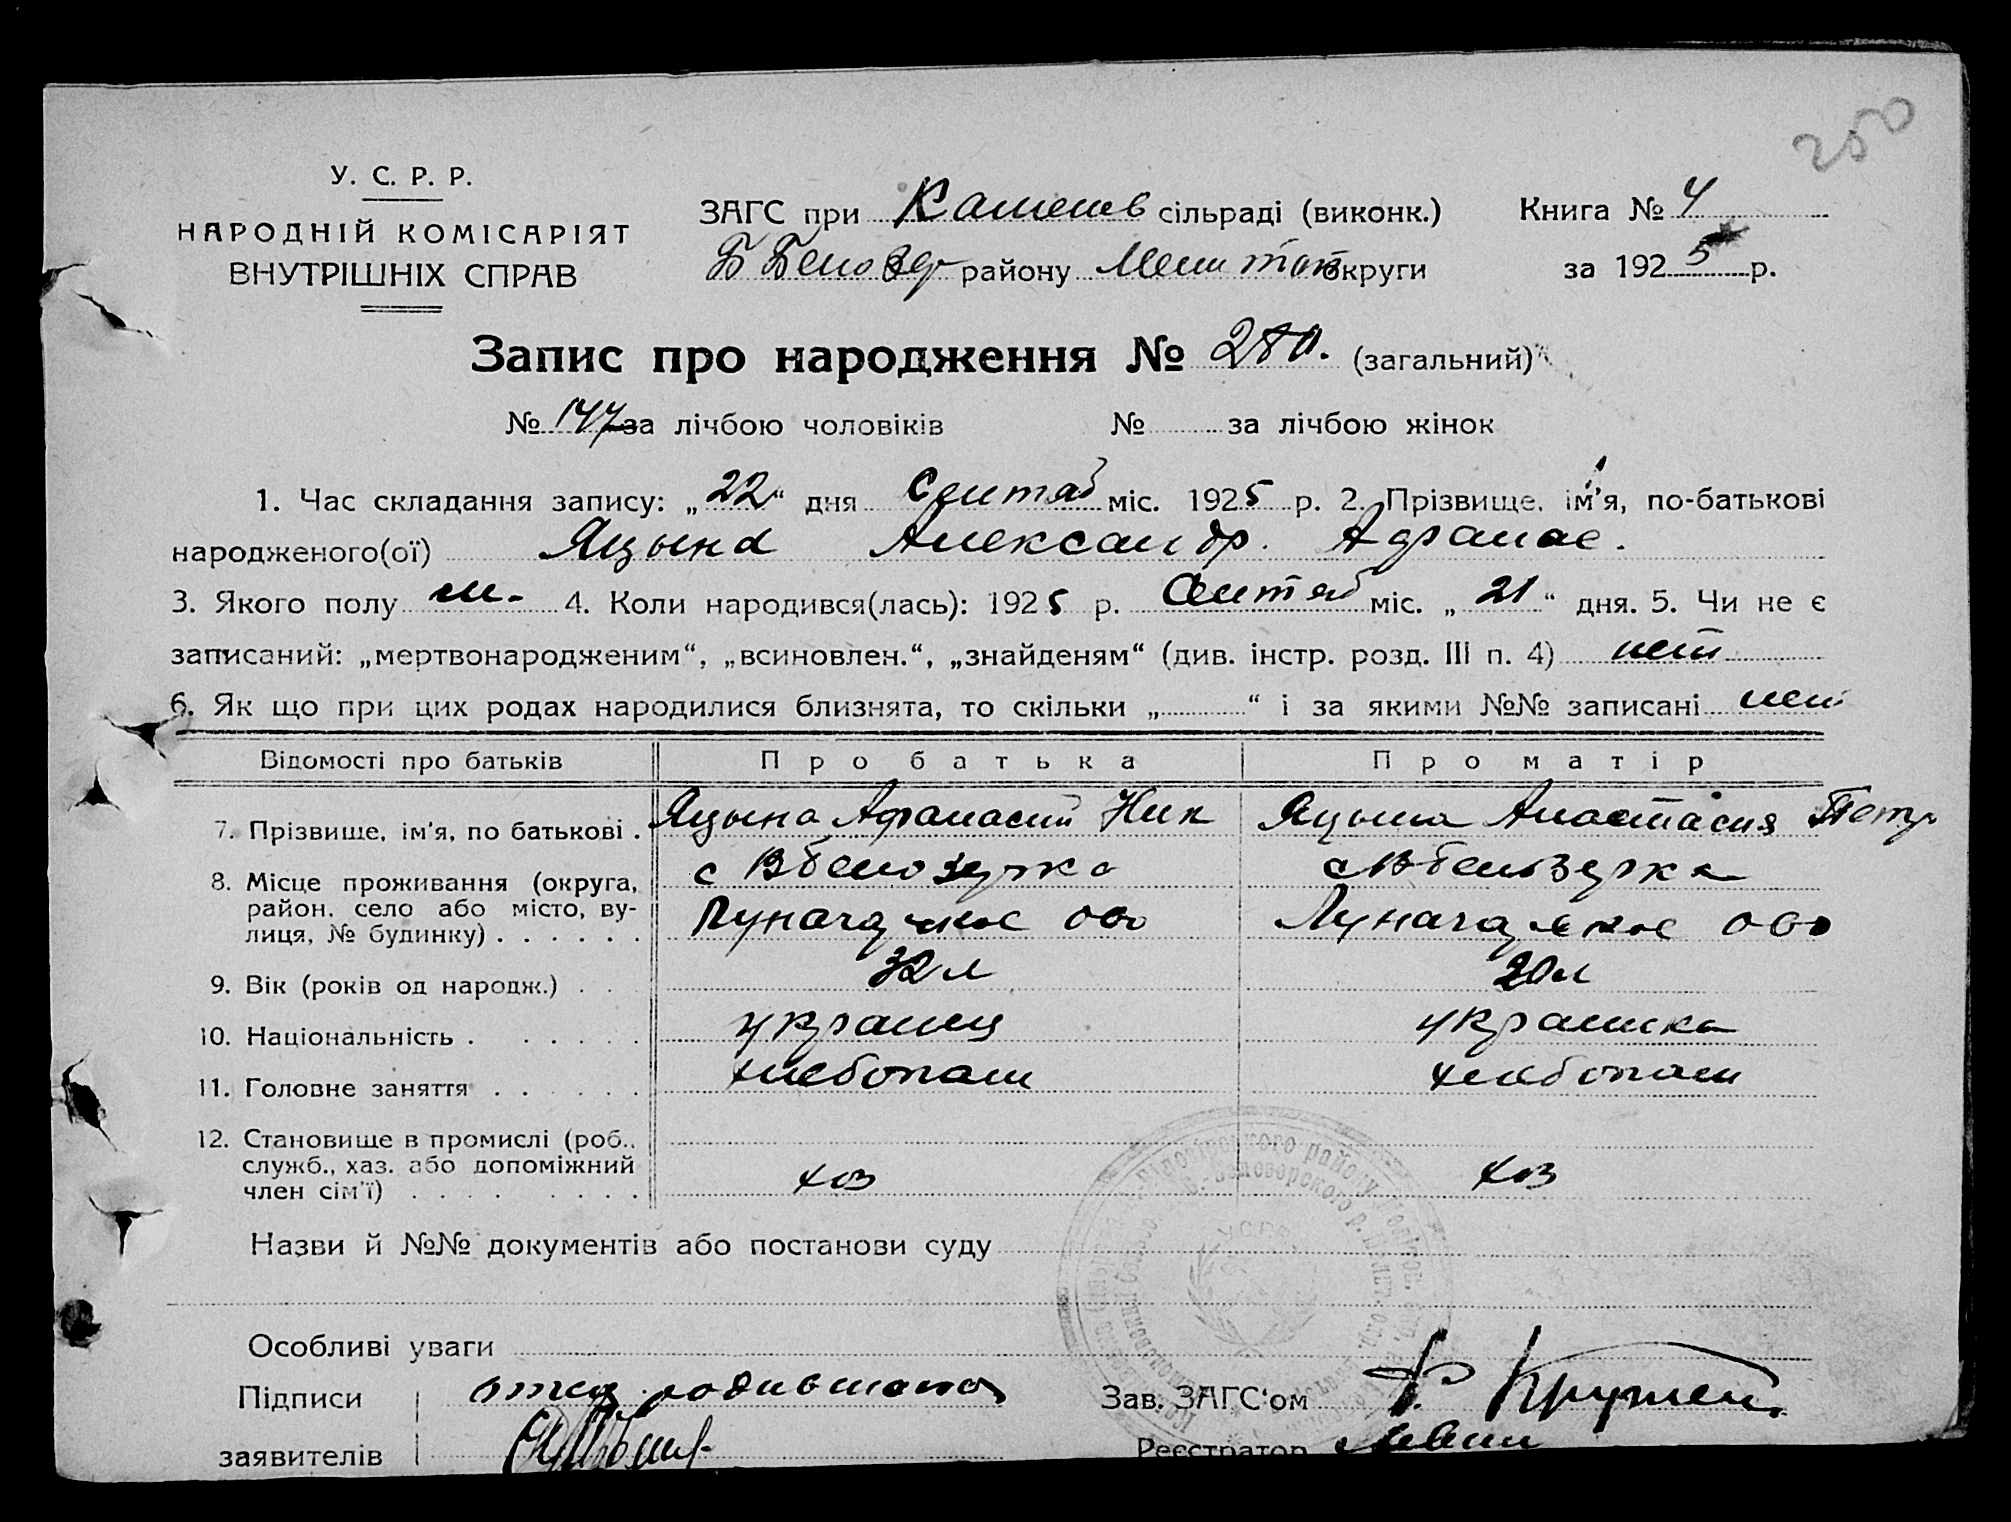 250
У. С. Р. Р.
НАРОДНІЙ КОМІСАРІЯТ
ВНУТРІШНІХ СПРАВ
ЗАГС при сільраді (виконк.) Книга № 4
Б Белозер району Мелитоп округи за 1925 р.
Запис про народження № 280. (загальний)
№ 147 за лічбою чоловіків № за лічбою жінок
1. Час складання запису: „22“ дня Сентяб міс. 1925 р. 2. Прізвище, ім'я, по-батькові
народженого(ої) Яцына Александр. Афанас.
3. Якого полу м. 4. Коли народився(лась): 1925 р. Сентяб міс. „21“ дня. 5. Чи не є
записаний: „мертвонародженим“, „всиновлен.“, „знайденям“ (див. інстр. розд. III п. 4) нет
6. Як що при цих родах народилися близнята, то скільки „ “ і за якими №№ записані нет
Відомості про батьків Про батька Про матір
7. Прізвище, ім'я, по батькові . Яцына Афанасий Ник Яцына Анастасия Петр
8. Місце проживання (округа, с Вбелозерка с Вбелозерка
район, село або місто, ву-
лиця, № будинку) . . . . . . Луначарское ово Луначарское ово
9. Вік (років од народж.) . . 32 л 20 л
10. Національність . . . . . . украинец украинка
11. Головне заняття . . . . . хлебопаш хлебопаш
12. Становище в промислі (роб.,
служб., хаз. або допоміжний
член сім'ї) . . . . . . . . хоз хоз
Назви й №№ документів або постанови суду
У.С.Р.Р.
Особливі уваги
Підписи отец родившагося Зав. ЗАГС'ом
заявителів Реєстратор